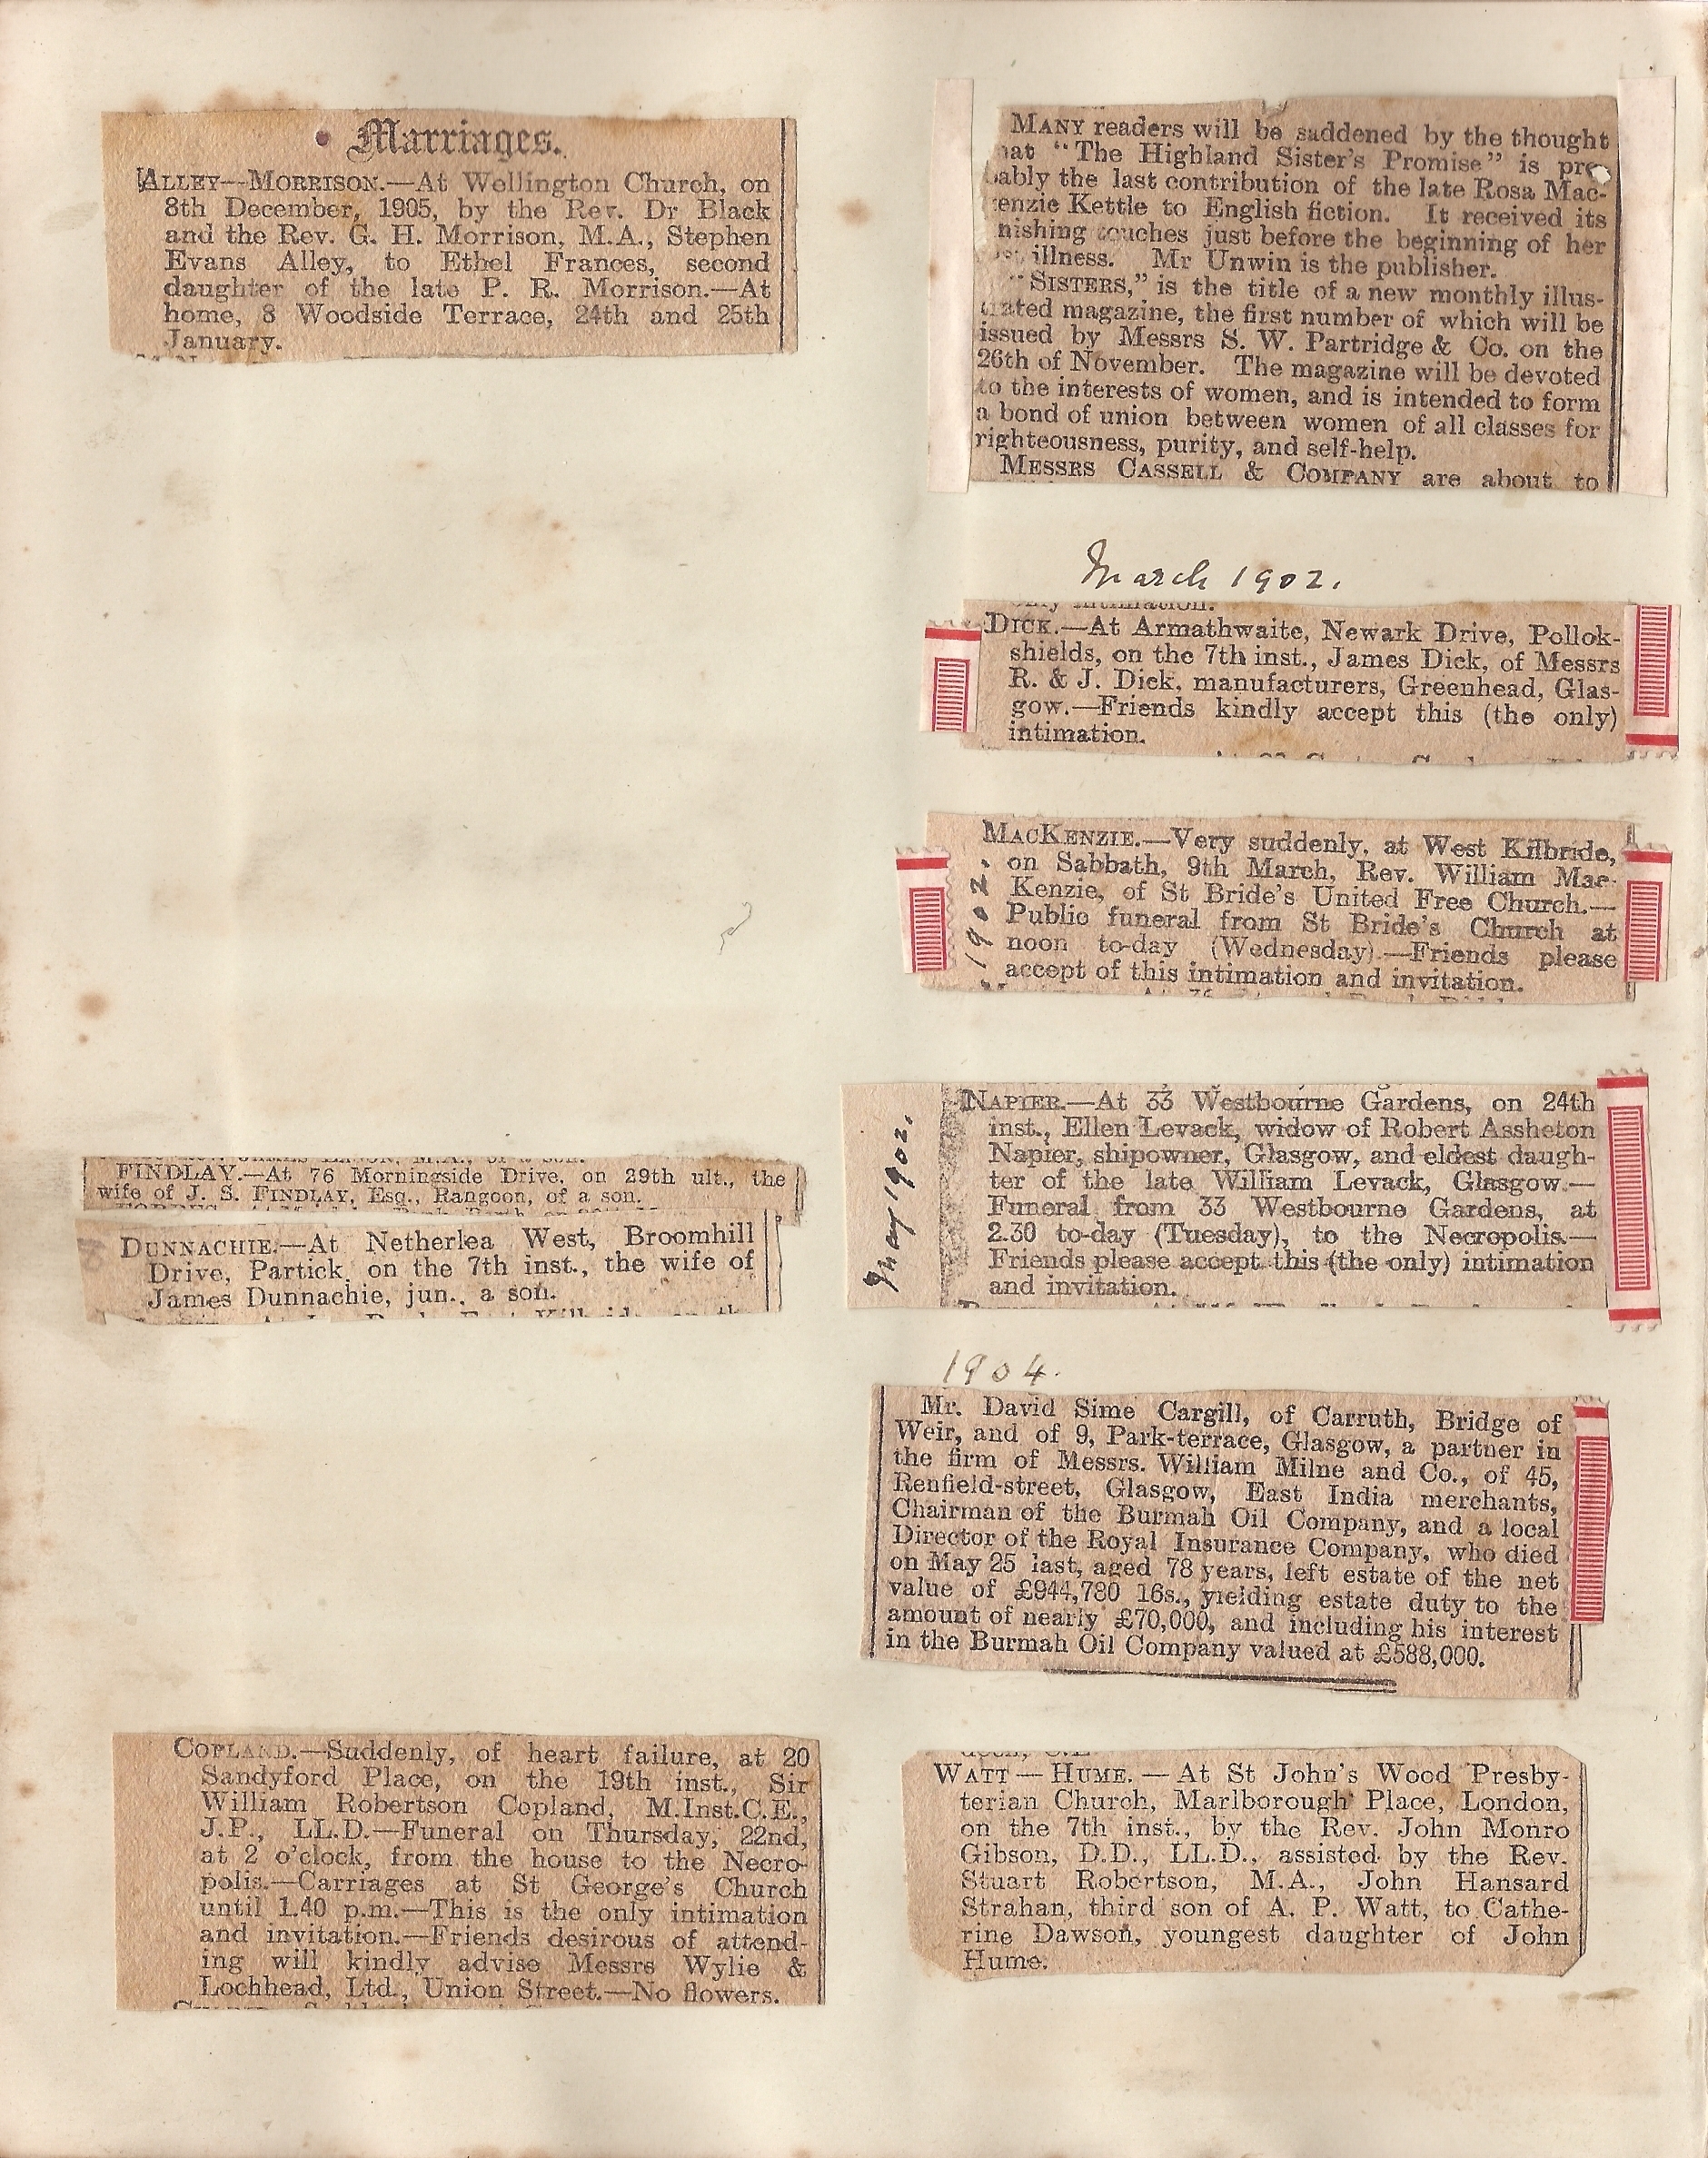 Marriages.
ALLEY—MORRISON.—At Wellington Church, on
8th December, 1905, by the Rev. Dr Black
and the Rev. G. H. Morrison, M.A., Stephen
Evans Alley, to Ethel Frances, second
daughter of the late P. R. Morrison.—At
home, 8 Woodside Terrace, 24th and 25th
January.
FINDLAY.—At 76 Morningside Drive, on 29th ult., the
wife of J. S. FINDLAY, Esq., Rangoon, of a son.
DUNNACHIE.—At Netherlea West, Broomhill
Drive, Partick, on the 7th inst., the wife of
James Dunnachie, jun., a son.
COPLAND.—Suddenly, of heart failure, at 20
Sandyford Place, on the 19th inst., Sir
William Robertson Copland, M.Inst.C.E.,
J.P., LL.D.—Funeral on Thursday, 22nd,
at 2 o'clock, from the house to the Necro-
polis.—Carriages at St George's Church
until 1.40 p.m.—This is the only intimation
and invitation.—Friends desirous of attend-
ing will kindly advise Messrs Wylie &
Lochhead, Ltd., Union Street.—No flowers.
MANY readers will be saddened by the thought
hat "The Highland Sister's Promise" is pro
bably the last contribution of the late Rosa Mac-
enzie Kettle to English fiction. It received its
nishing touches just before the beginning of her
illness. Mr Unwin is the publisher.
"SISTERS," is the title of a new monthly illus-
trated magazine, the first number of which will be
issued by Messrs S. W. Partridge & Co. on the
26th of November. The magazine will be devoted
to the interests of women, and is intended to form
a bond of union between women of all classes for
righteousness, purity, and self-help.
MESSRS CASSELL & COMPANY are about to
March 1902.
only intimation.
DICK.—At Armathwaite, Newark Drive, Pollok-
shields, on the 7th inst., James Dick, of Messrs
R. & J. Dick, manufacturers, Greenhead, Glas-
gow.—Friends kindly accept this (the only)
intimation.
1902.
MACKENZIE.—Very suddenly, at West Kilbride,
on Sabbath, 9th March, Rev. William Mac-
Kenzie, of St Bride's United Free Church.—
Public funeral from St Bride's Church at
noon to-day (Wednesday).—Friends please
accept of this intimation and invitation.
May 1902.
NAPIER.—At 33 Westbourne Gardens, on 24th
inst., Ellen Levack, widow of Robert Assheton
Napier, shipowner, Glasgow, and eldest daugh-
ter of the late William Levack, Glasgow.—
Funeral from 33 Westbourne Gardens, at
2.30 to-day (Tuesday), to the Necropolis.—
Friends please accept this (the only) intimation
and invitation.
1904.
Mr. David Sime Cargill, of Carruth, Bridge of
Weir, and of 9, Park-terrace, Glasgow, a partner in
the firm of Messrs. William Milne and Co., of 45,
Renfield-street, Glasgow, East India merchants,
Chairman of the Burmah Oil Company, and a local
Director of the Royal Insurance Company, who died
on May 25 last, aged 78 years, left estate of the net
value of £944,780 16s., yielding estate duty to the
amount of nearly £70,000, and including his interest
in the Burmah Oil Company valued at £588,000.
WATT — HUME. — At St John's Wood Presby-
terian Church, Marlborough Place, London,
on the 7th inst., by the Rev. John Monro
Gibson, D.D., LL.D., assisted by the Rev.
Stuart Robertson, M.A., John Hansard
Strahan, third son of A. P. Watt, to Cathe-
rine Dawson, youngest daughter of John
Hume.